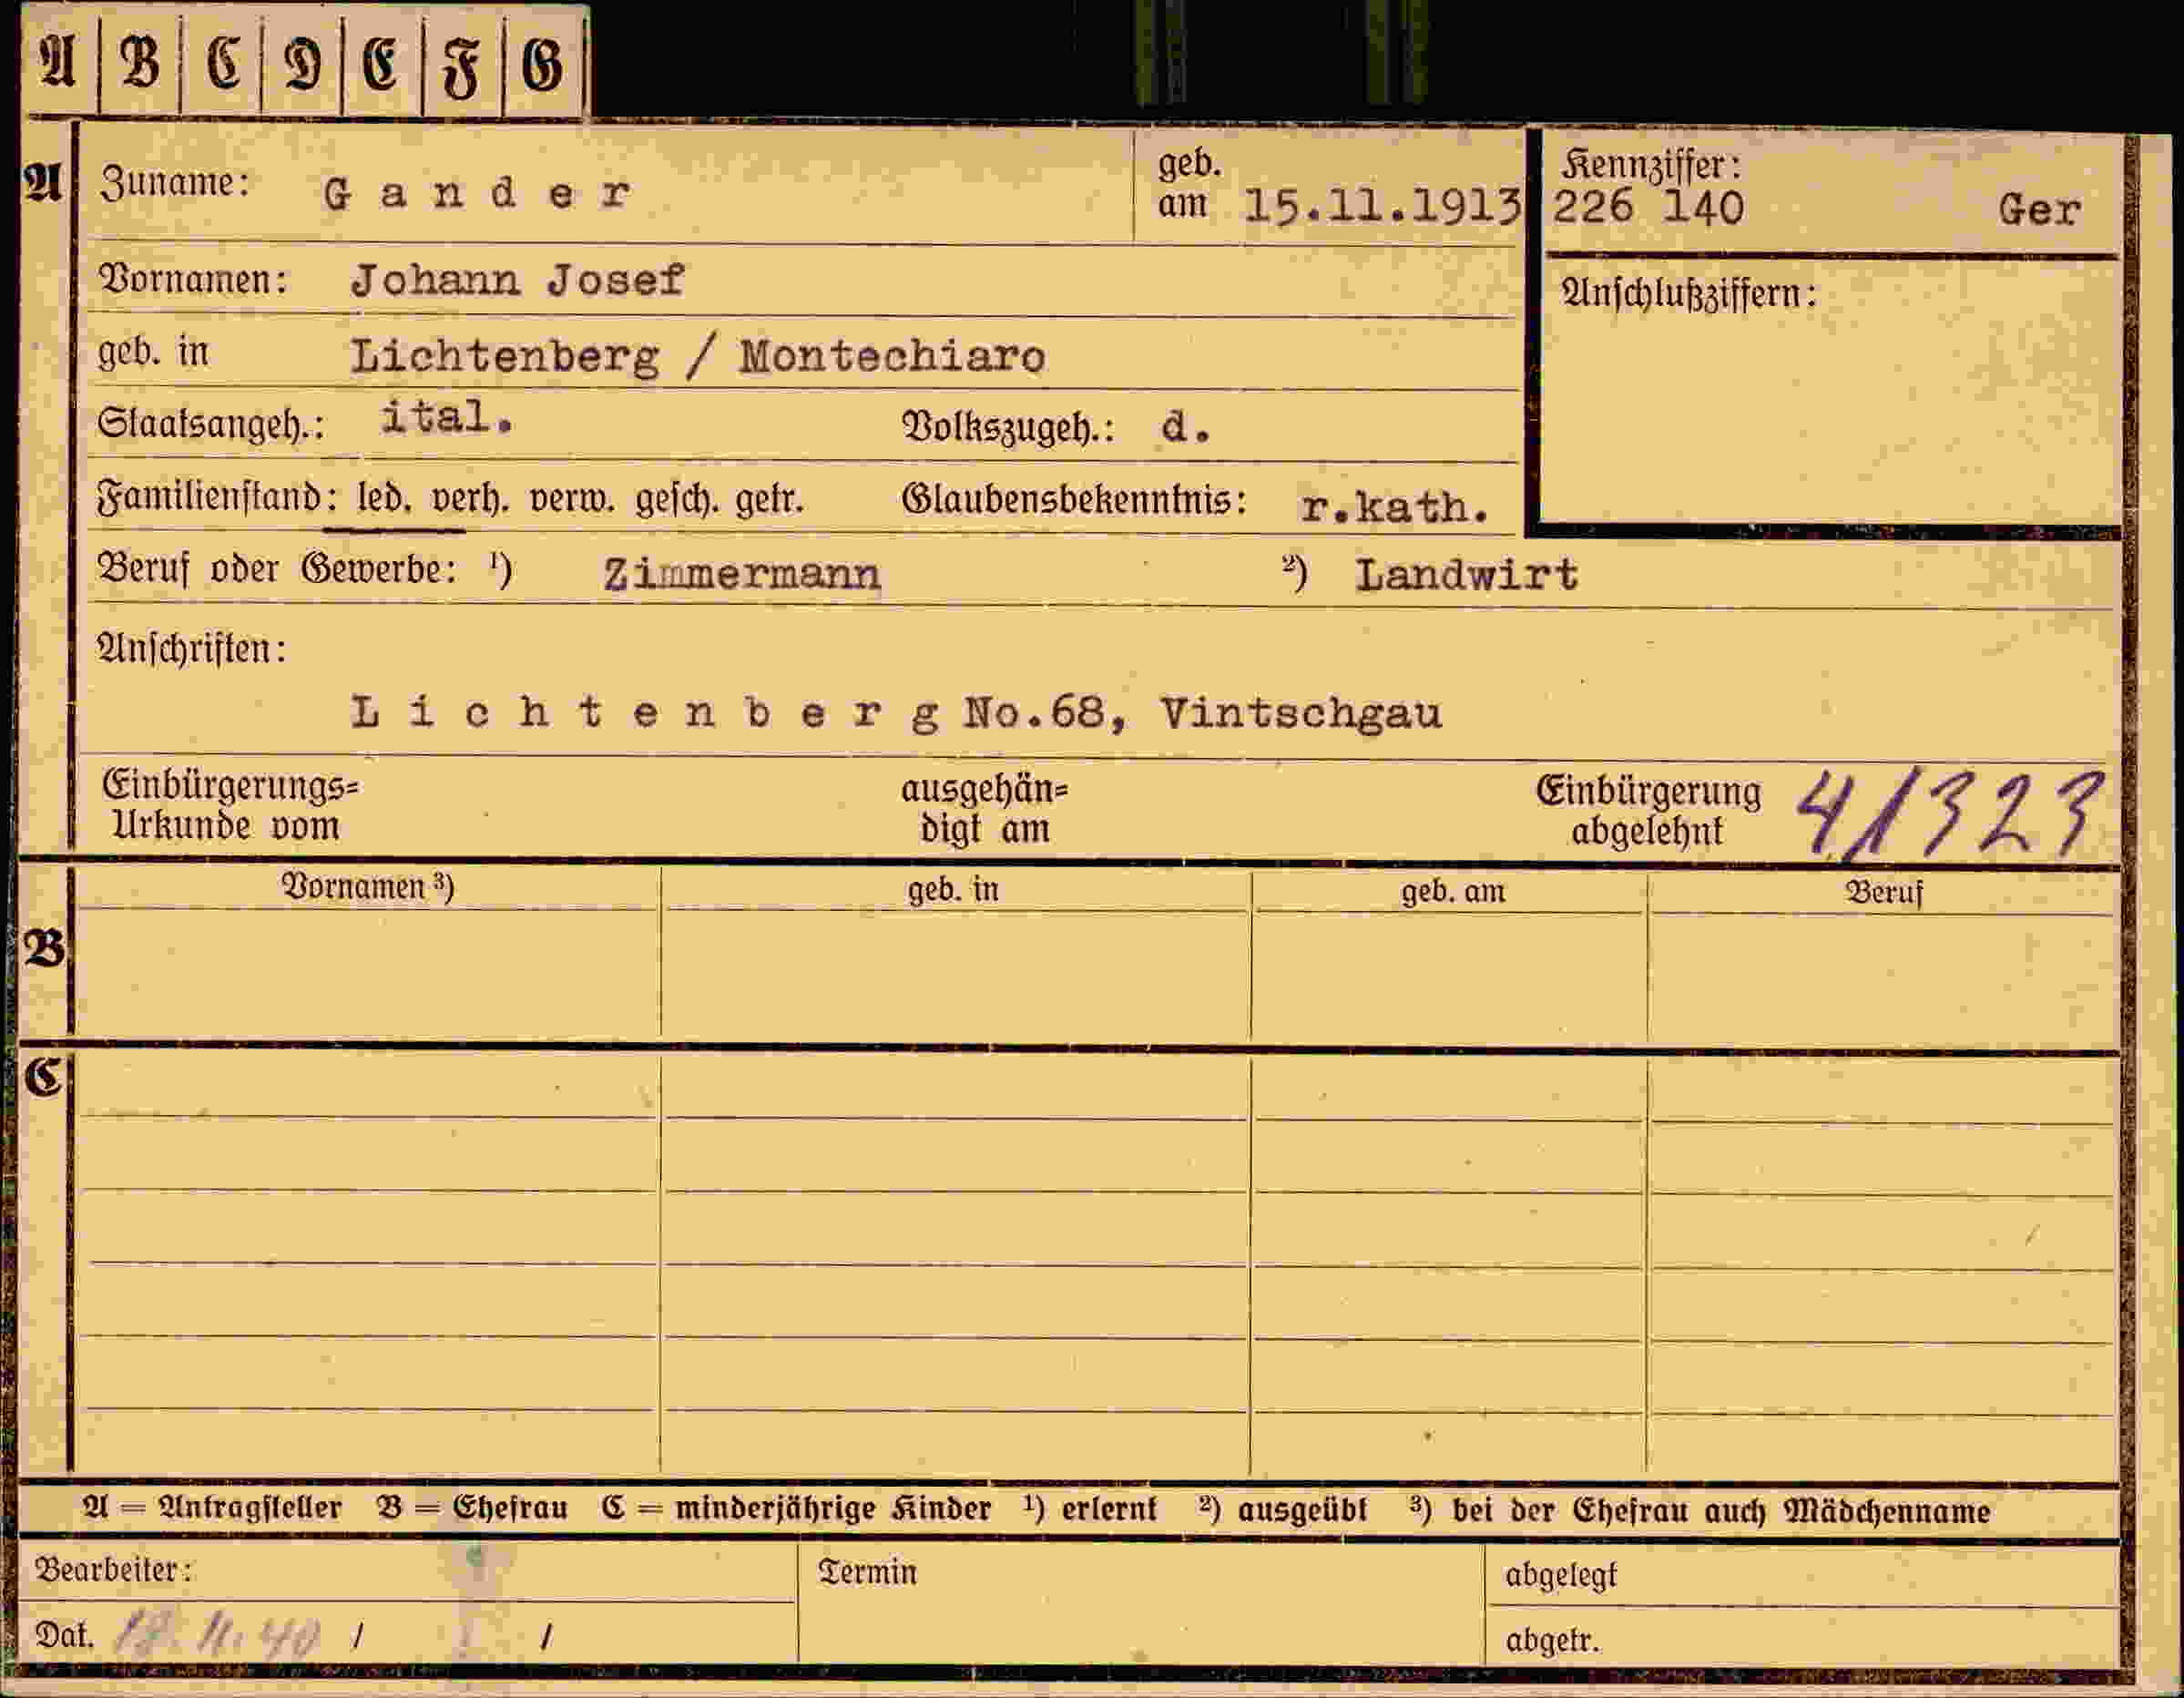 A B C D E F G
A Zuname: Gander geb. am 15.11.1913 Kennziffer: 226 140 Ger
Vornamen: Johann Josef Anschlußziffern:
geb. in Lichtenberg / Montechiaro
Staatsangeh.: ital. Volkszugeh.: d.
Familienstand: led. verh. verw. gesch. getr. Glaubensbekenntnis: r.kath.
Beruf oder Gewerbe: ¹) Zimmermann ²) Landwirt
Anschriften:
Lichtenberg No.68, Vintschgau
Einbürgerungs= ausgehän= Einbürgerung 41323
Urkunde vom digt am abgelehnt
Vornamen ³) geb. in geb. am Beruf
B
C
A = Antragsteller B = Ehefrau C = minderjährige Kinder ¹) erlernt ²) ausgeübt ³) bei der Ehefrau auch Mädchenname
Bearbeiter: Termin abgelegt
Dat. 18.11.40 / / abgetr.